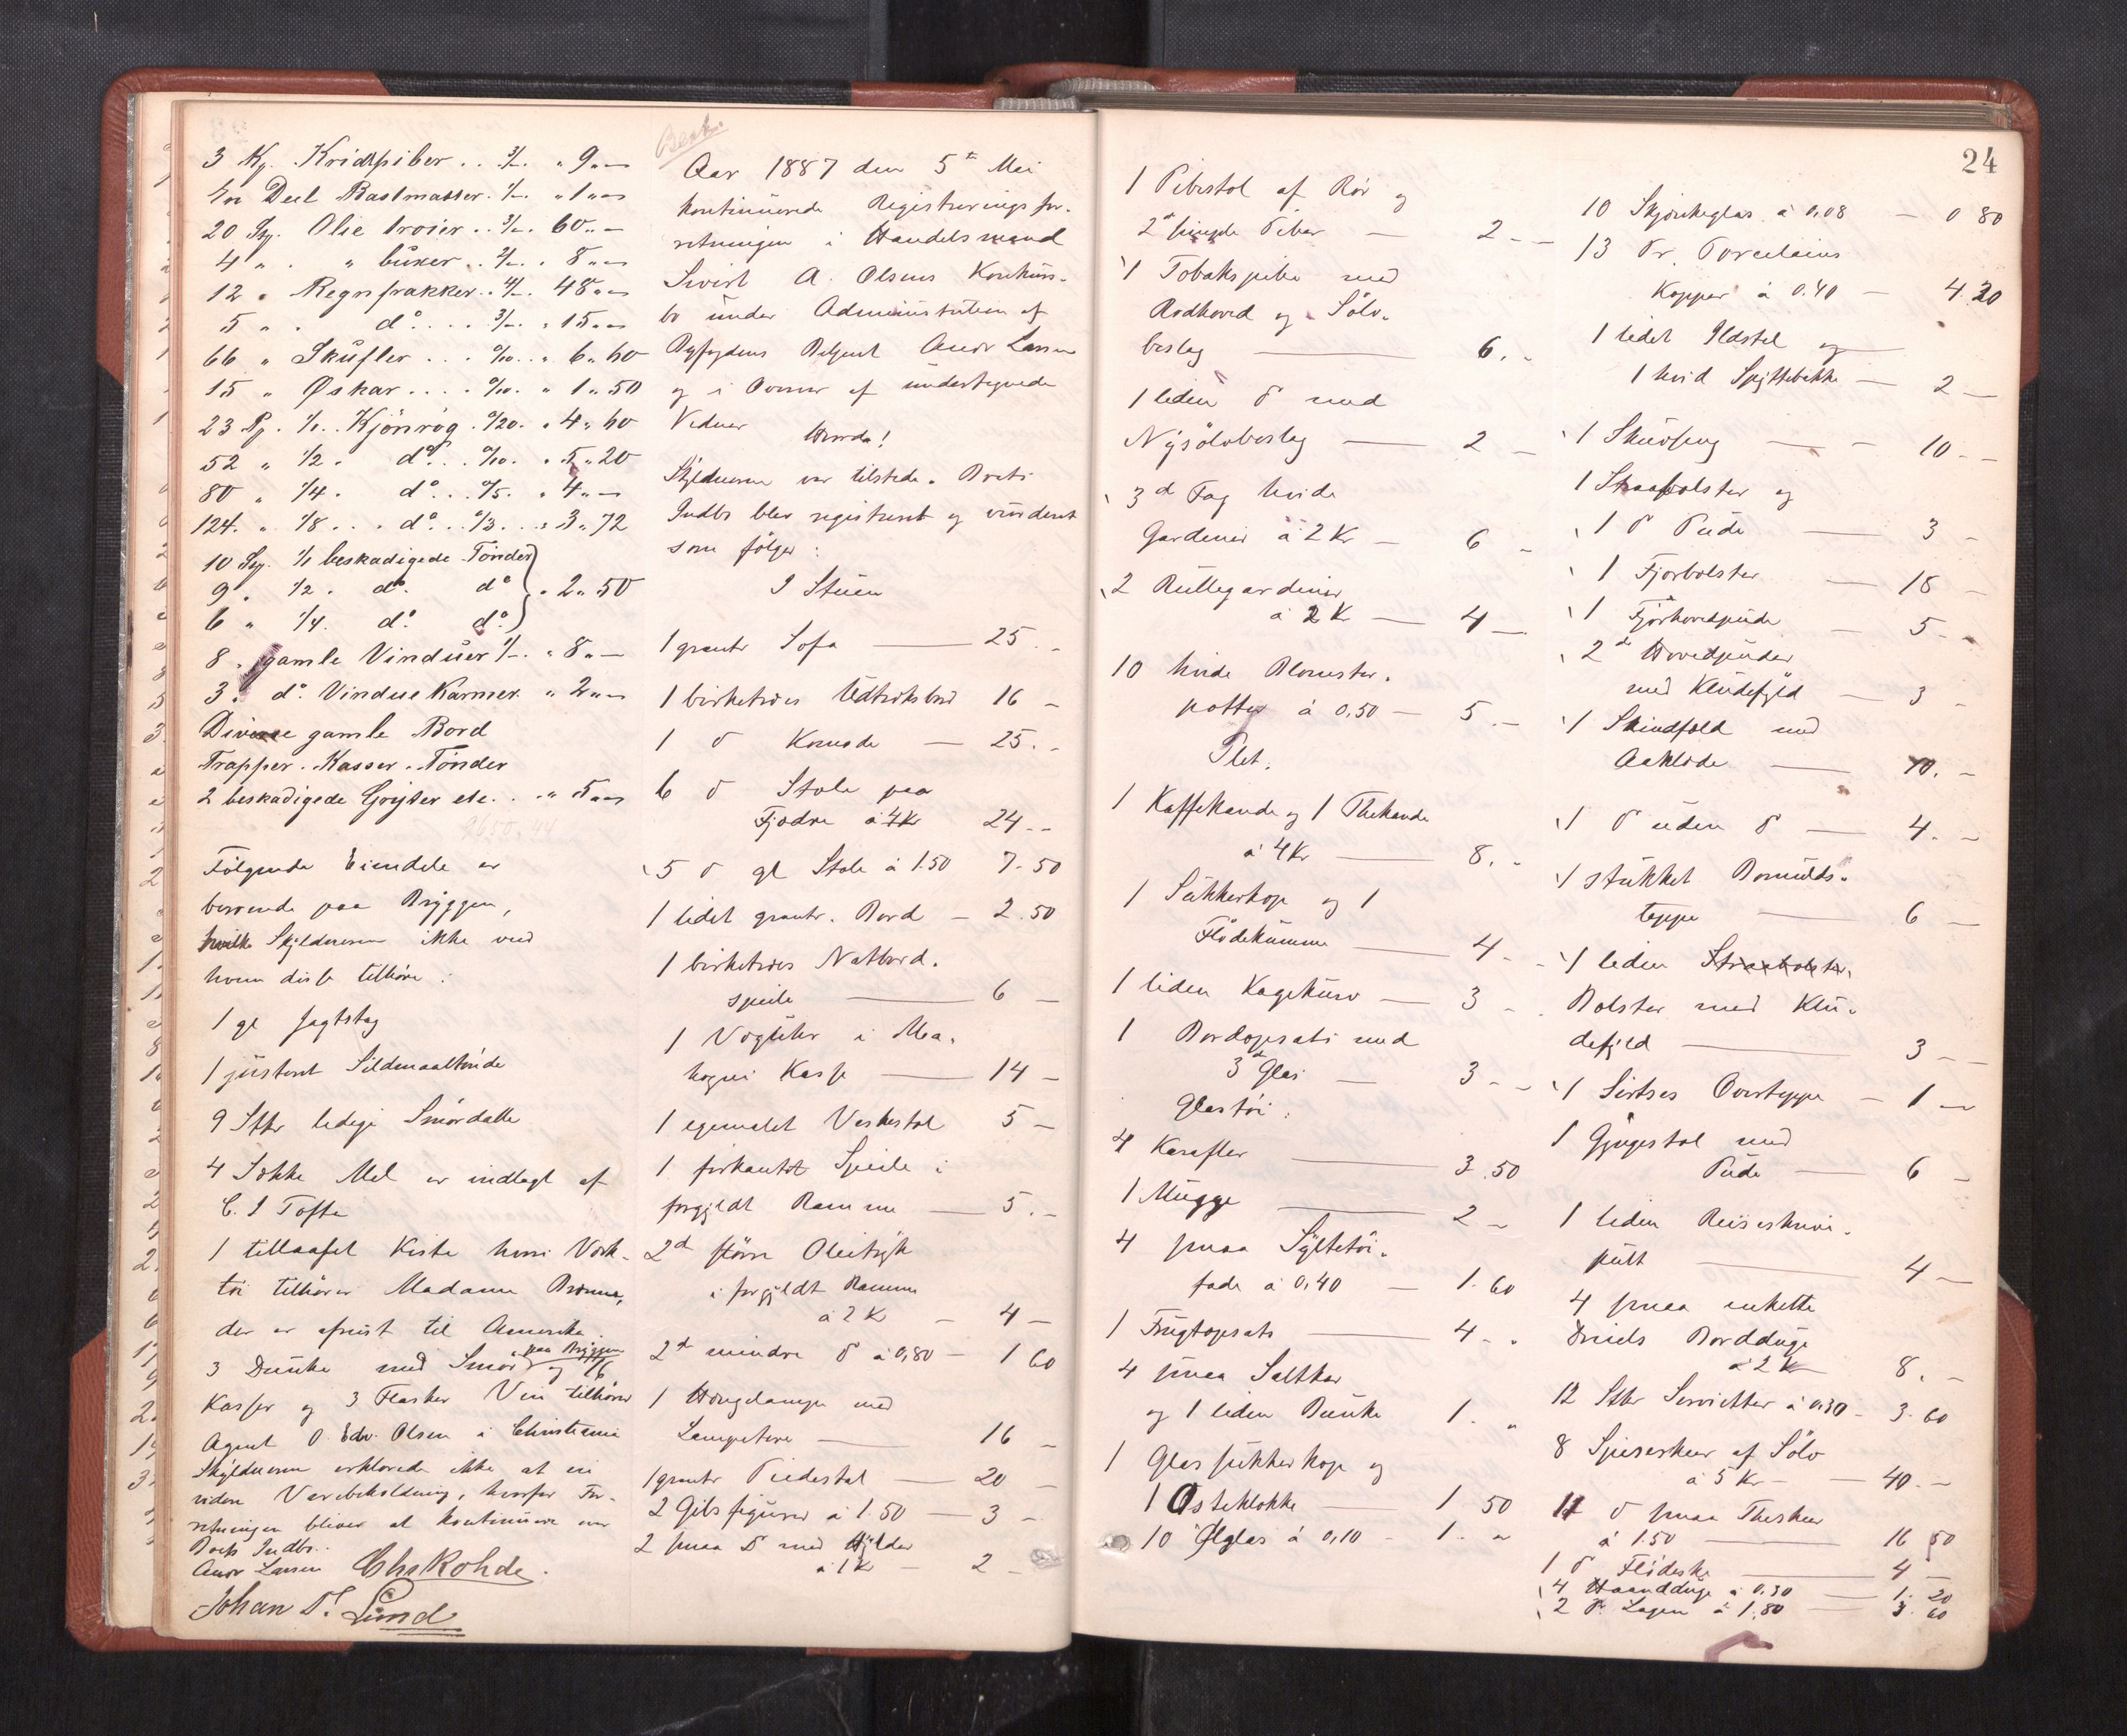 3 Kg. Kridtpiber . . 3/- " 9 " -
En Deel Bastmatter 1/- " 1 " -
20 Stg. Olie trøier . . 3/- . 60 " -
4 " . " buxer . . 2/- . 8 " -
12 " Regnfrakker . . 4/- . 48 " -
5 " . do . . . . 3/- . 15 " -
66 " Skufler . . . 0/10 . " 6 " 60
15 " Øskar . . . . 0/10 . " 1 " 50
23 Pg. 1/1 . Kjönrög . 0/20 . " 4 " 60
52 " 1/2 " do . . 0/10 . " 5 " 20
80 " 1/4 . do . . 0/5 . " 4 " -
124 . " 1/8 . . . do . . 0/3 . . . 3 " 72
10 Stg. 1/1 beskadigede Tönder
9 " 1/2 . do. do . 2 " 50
6 " 1/4 . do. do.
8 " gamle Vinduer 1/- . " 8 " -
3 " do. Vindue Karmer " 2 " -
Diverse gamle Bord
Trapper . Kasser . Tönder
2 beskadigede Gryter etc . . " 5 " -
2650.44
Fölgende Eiendele er
beroende paa Bryggen,
hvilke Skyldneren ikke ved
hvem disse tilhöre :
1 gl Jagtstag
1 justeret Sildmaaltönde
9 Stkr ledige Smördalle
4 Sække Mel er indlagt af
C. J Tofte
1 tillaaset Kiste hvori Værk-
töi tilhörer Madame Brönne,
der er afreist til Amerika
3 Dunke med Smör paa Bryggen og 16
Kasser og 3 Flasker Vin tilhörer
Agent O. Edv. Olsen i Christiania
Skyldneren erklærede ikke at eie
videre Varebeholdning, hvorfor For-
retningen bliver at kontinuere over
Boets Indbo.
Andr Larsen Chs Rohde.
Johan T. Lund
Besk.
Aar 1887 den 5te Mai
kontinuerede Registreringsfor-
retningen i Handelsmand
Sivert A. Olsens Konkurs-
bo under Administration af
Byfogdens Betjent Andr Larsen
og i Overvær af undertegnede
Vidner
Skyldneren var tilstede. Boets
Indbo blev registreret og vurderet
som fölger :
I Stuen
1 grantr Sofa — 25 . -
1 birketræes Udtræksbord 16 -
1 do Komode — 25 . -
6 do Stole paa
Fjædre à 4 Kr 24 . -
5 do gl Stole à 1.50 7 . 50
1 lidet grantr. Bord — 2 . 50
1 birketræes Natbord .
speile — 6 -
1 Vægtuhr i Ma .
hogni Kasse — 14 -
1 egemalet Vaskestol 5 -
1 firkantet Speile i
forgyldt Ramme — 5 . -
2de större Olietryk
i forgyldt Ramme
à 2 Kr — 4 -
2de mindre do à 0,80 — 1 60
1 Hængelampe med
— 16 -
1 grantr Piedestal — 20 -
2 Gibsfigurer à 1.50 — 3 -
2 smaa do med Hylder
à 1 Kr — 2 -
24
1 Pibestol af Rör og
2de Piber — 2 - -
1 Tobakspibe med
Rodhoved og Sölv .
beslag — 6 . -
1 liden do med
Nysölvbeslag — 2 -
3de Fag hvide
Gardener à 2 Kr — 6 -
2 Rullegardiner
à 2 Kr — 4 —
10 hvide Blomster .
potter à 0,50 — 5 . -
Plet .
1 Kaffekande og 1 Thekande
à 4 Kr — 8 . -
1 Sukkerkop og 1
Flödekumme — 4 - -
1 liden Kagekurv — 3 -
1 Bordopsats med
3de Glas — 3 - -
Glastöi :
4 Karafler — 3 . 50
1 Mugge — 2 -
4 smaa Syltetöi .
fade à 0,40 — 1 . 60
1 Frugtopsats — 4 - .
4 smaa Saltkar
og 1 liden Dunke 1 . "
1 Glas sukkerkop og
1 Osteklokke — 1 50
10 Ølglas à 0,10 — 1 . -
10 Skjænkeglas à 0,08 — 0 80
13 Pr. Porcelains
Kopper à 0.40 — 4 . 20
1 lidet Ildstel og
1 hvid Spyttebakke — 2 —
1 Skuvseng — 10 - -
1 Straabolster og
1 do Pude — 3 -
1 Fjærbolster — 18 -
1 Fjærhovedpude — 5 - -
2de Hovedpuder
med Kludefyld — 3 -
1 Skindfæld med
Aaklæde — 10 . -
1 do uden do — 4 . -
1 stukket Bomulds .
teppe — 6 —
1 liden Straabolster
Bolster med Klu .
defyld — 3 —
1 Sirtses Overteppe — 1 —
1 Gyngestol med
Pude — 6 -
1 liden Reiseskrive .
pult — 4 —
4 smaa enkelte
Dreiels Bordduge
à 2 Kr 8 . -
12 Stkr Servietter à 0,30 — 3 . 60
8 Spiseskeer af Sölv
à 5 Kr — 40 . -
11 do smaa Theskeer
à 1.50 — 16 50
1 do Flödeske — 4 -
4 Haandduge à 0,30 — 1 . 20
2 Pr Lagen à 1,80 — 3 . 60